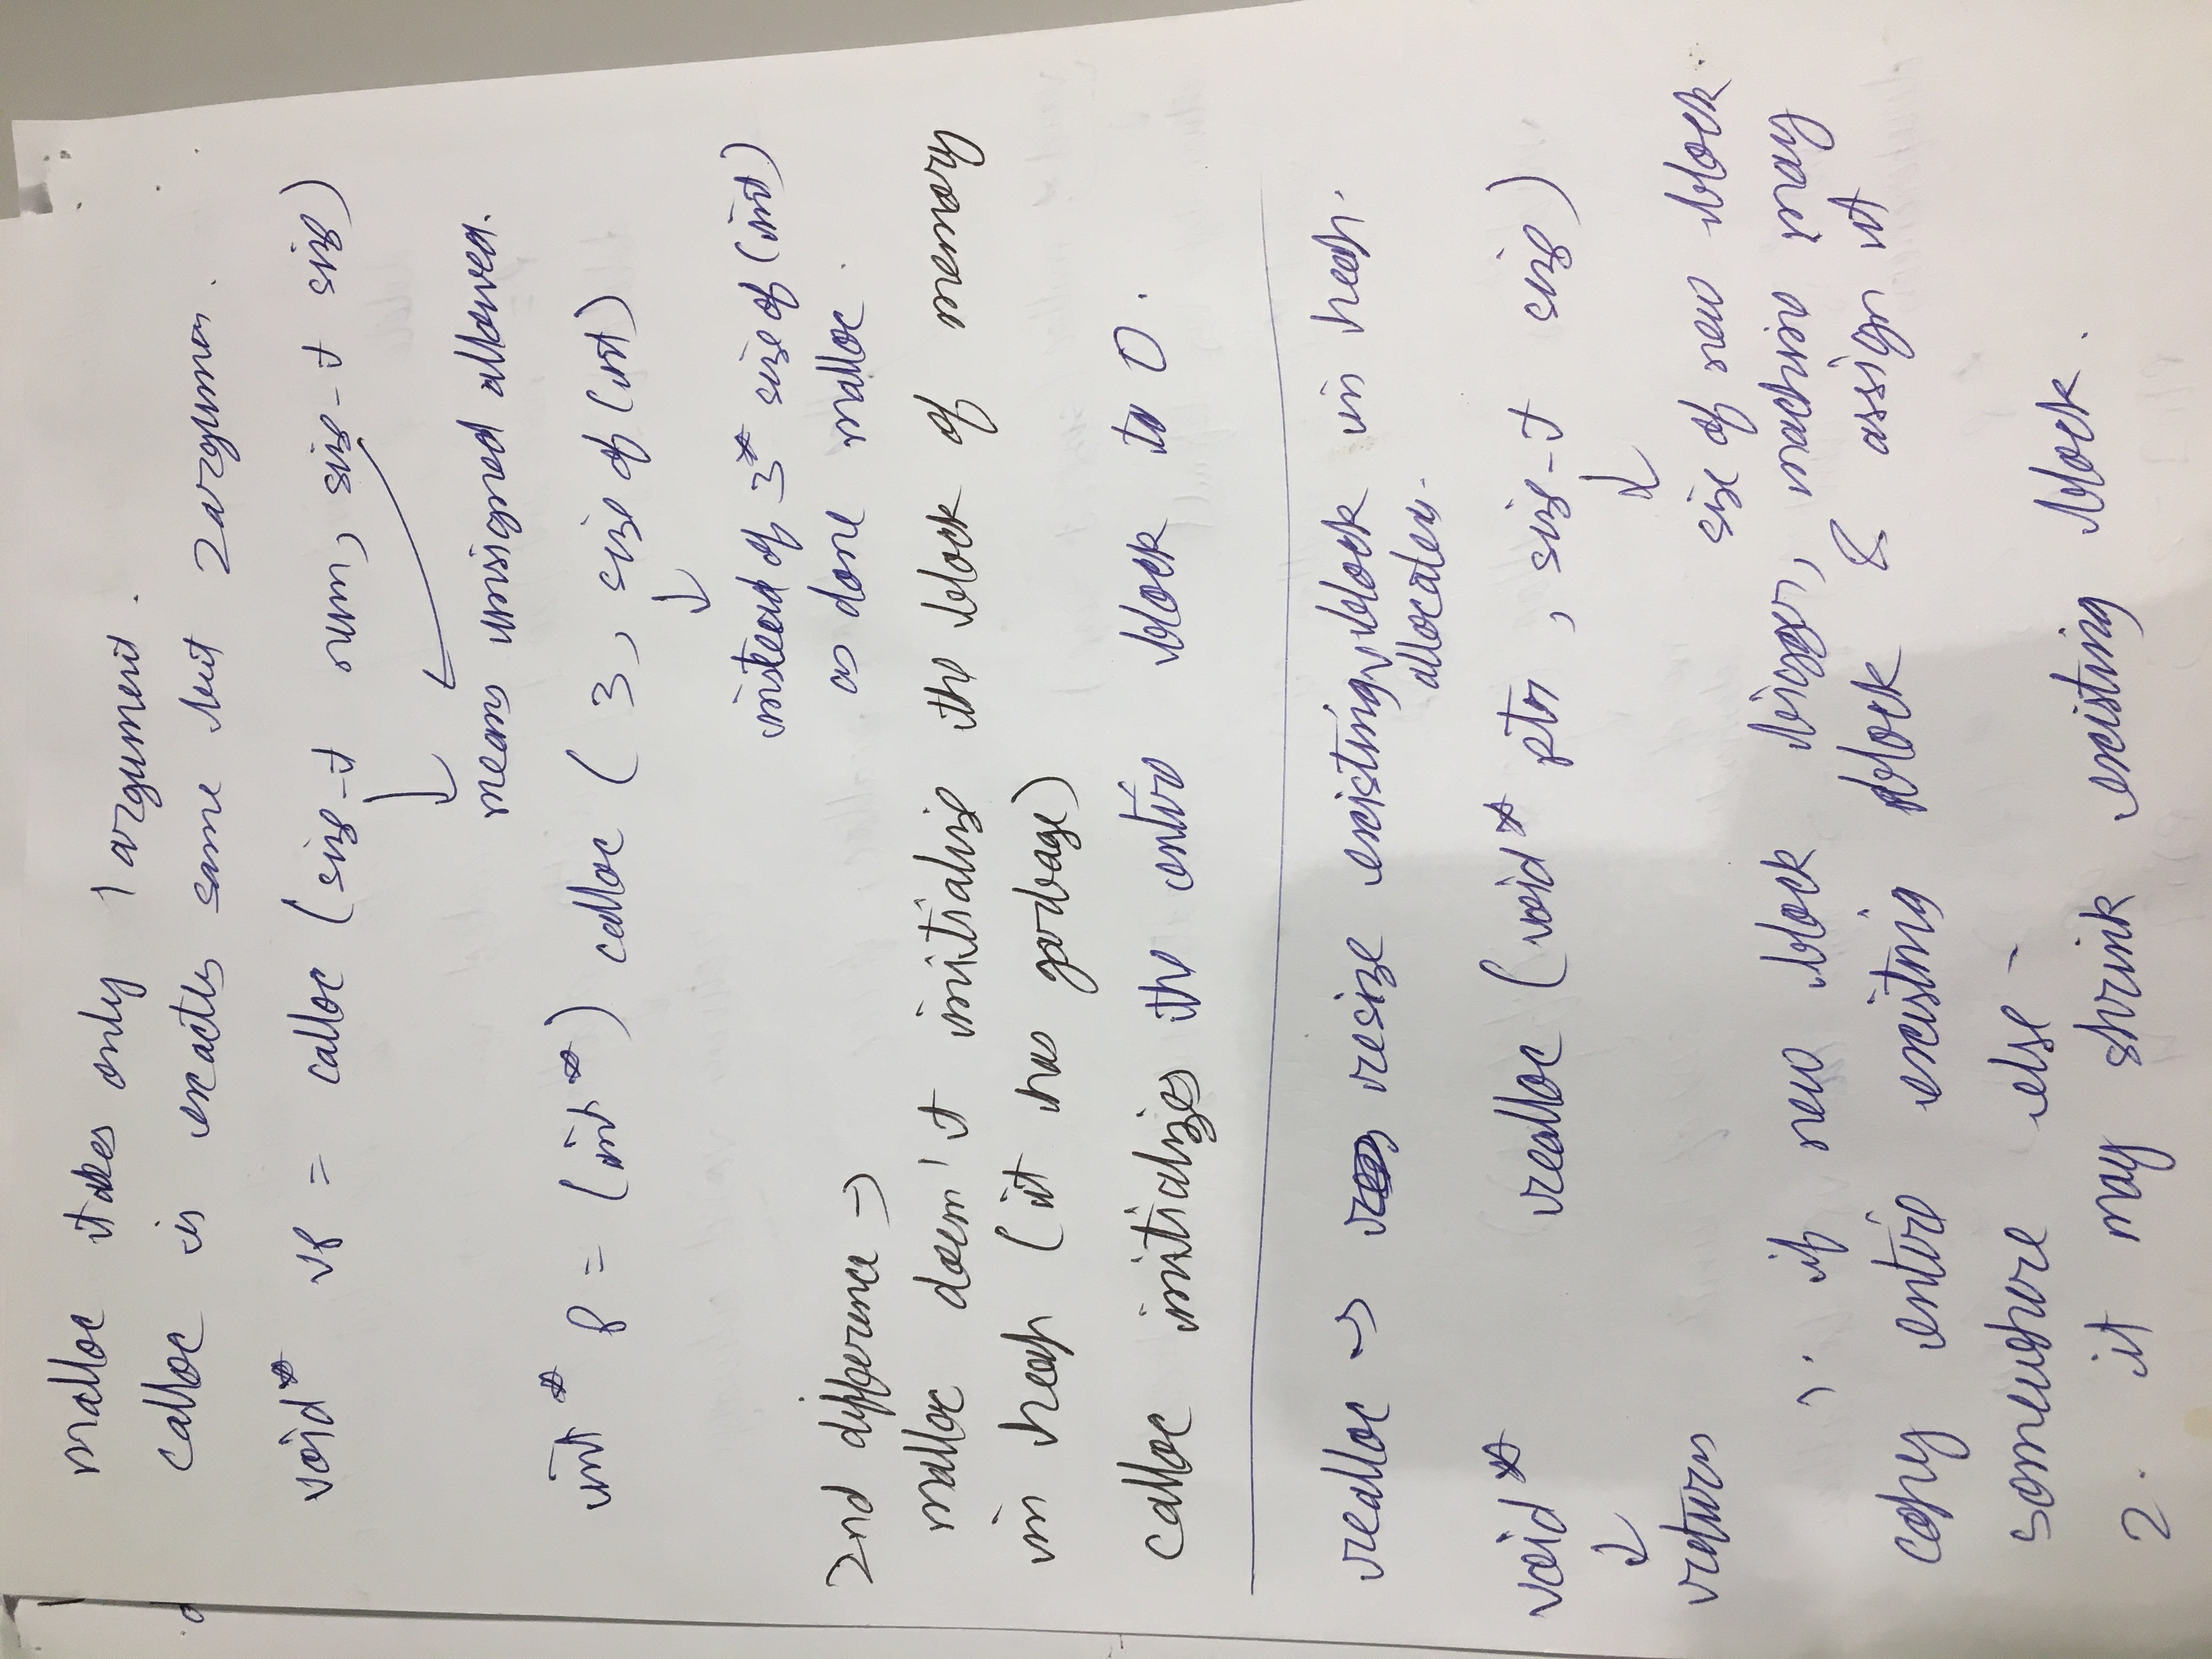 malloc takes only 1 argument.
calloc is exactly same but 2 argumen.
void* vp = calloc (size_t num, size_t size)
means unsigned allowed.
int* p = (int*) calloc ( 3, size of (int)
instead of 3* size of (int)
as done malloc.
2nd difference →
malloc doesn't initialize the block of memory
in heap (it has garbage)
calloc initializes the entire block to 0.
realloc → resize existing block in heap.
allocated
void* realloc (void* ptr, size_t size)
return
size of new block
1. if new block bigger, machine may
copy entire existing block & assign it
somewhere else -
2. it may shrink existing block.